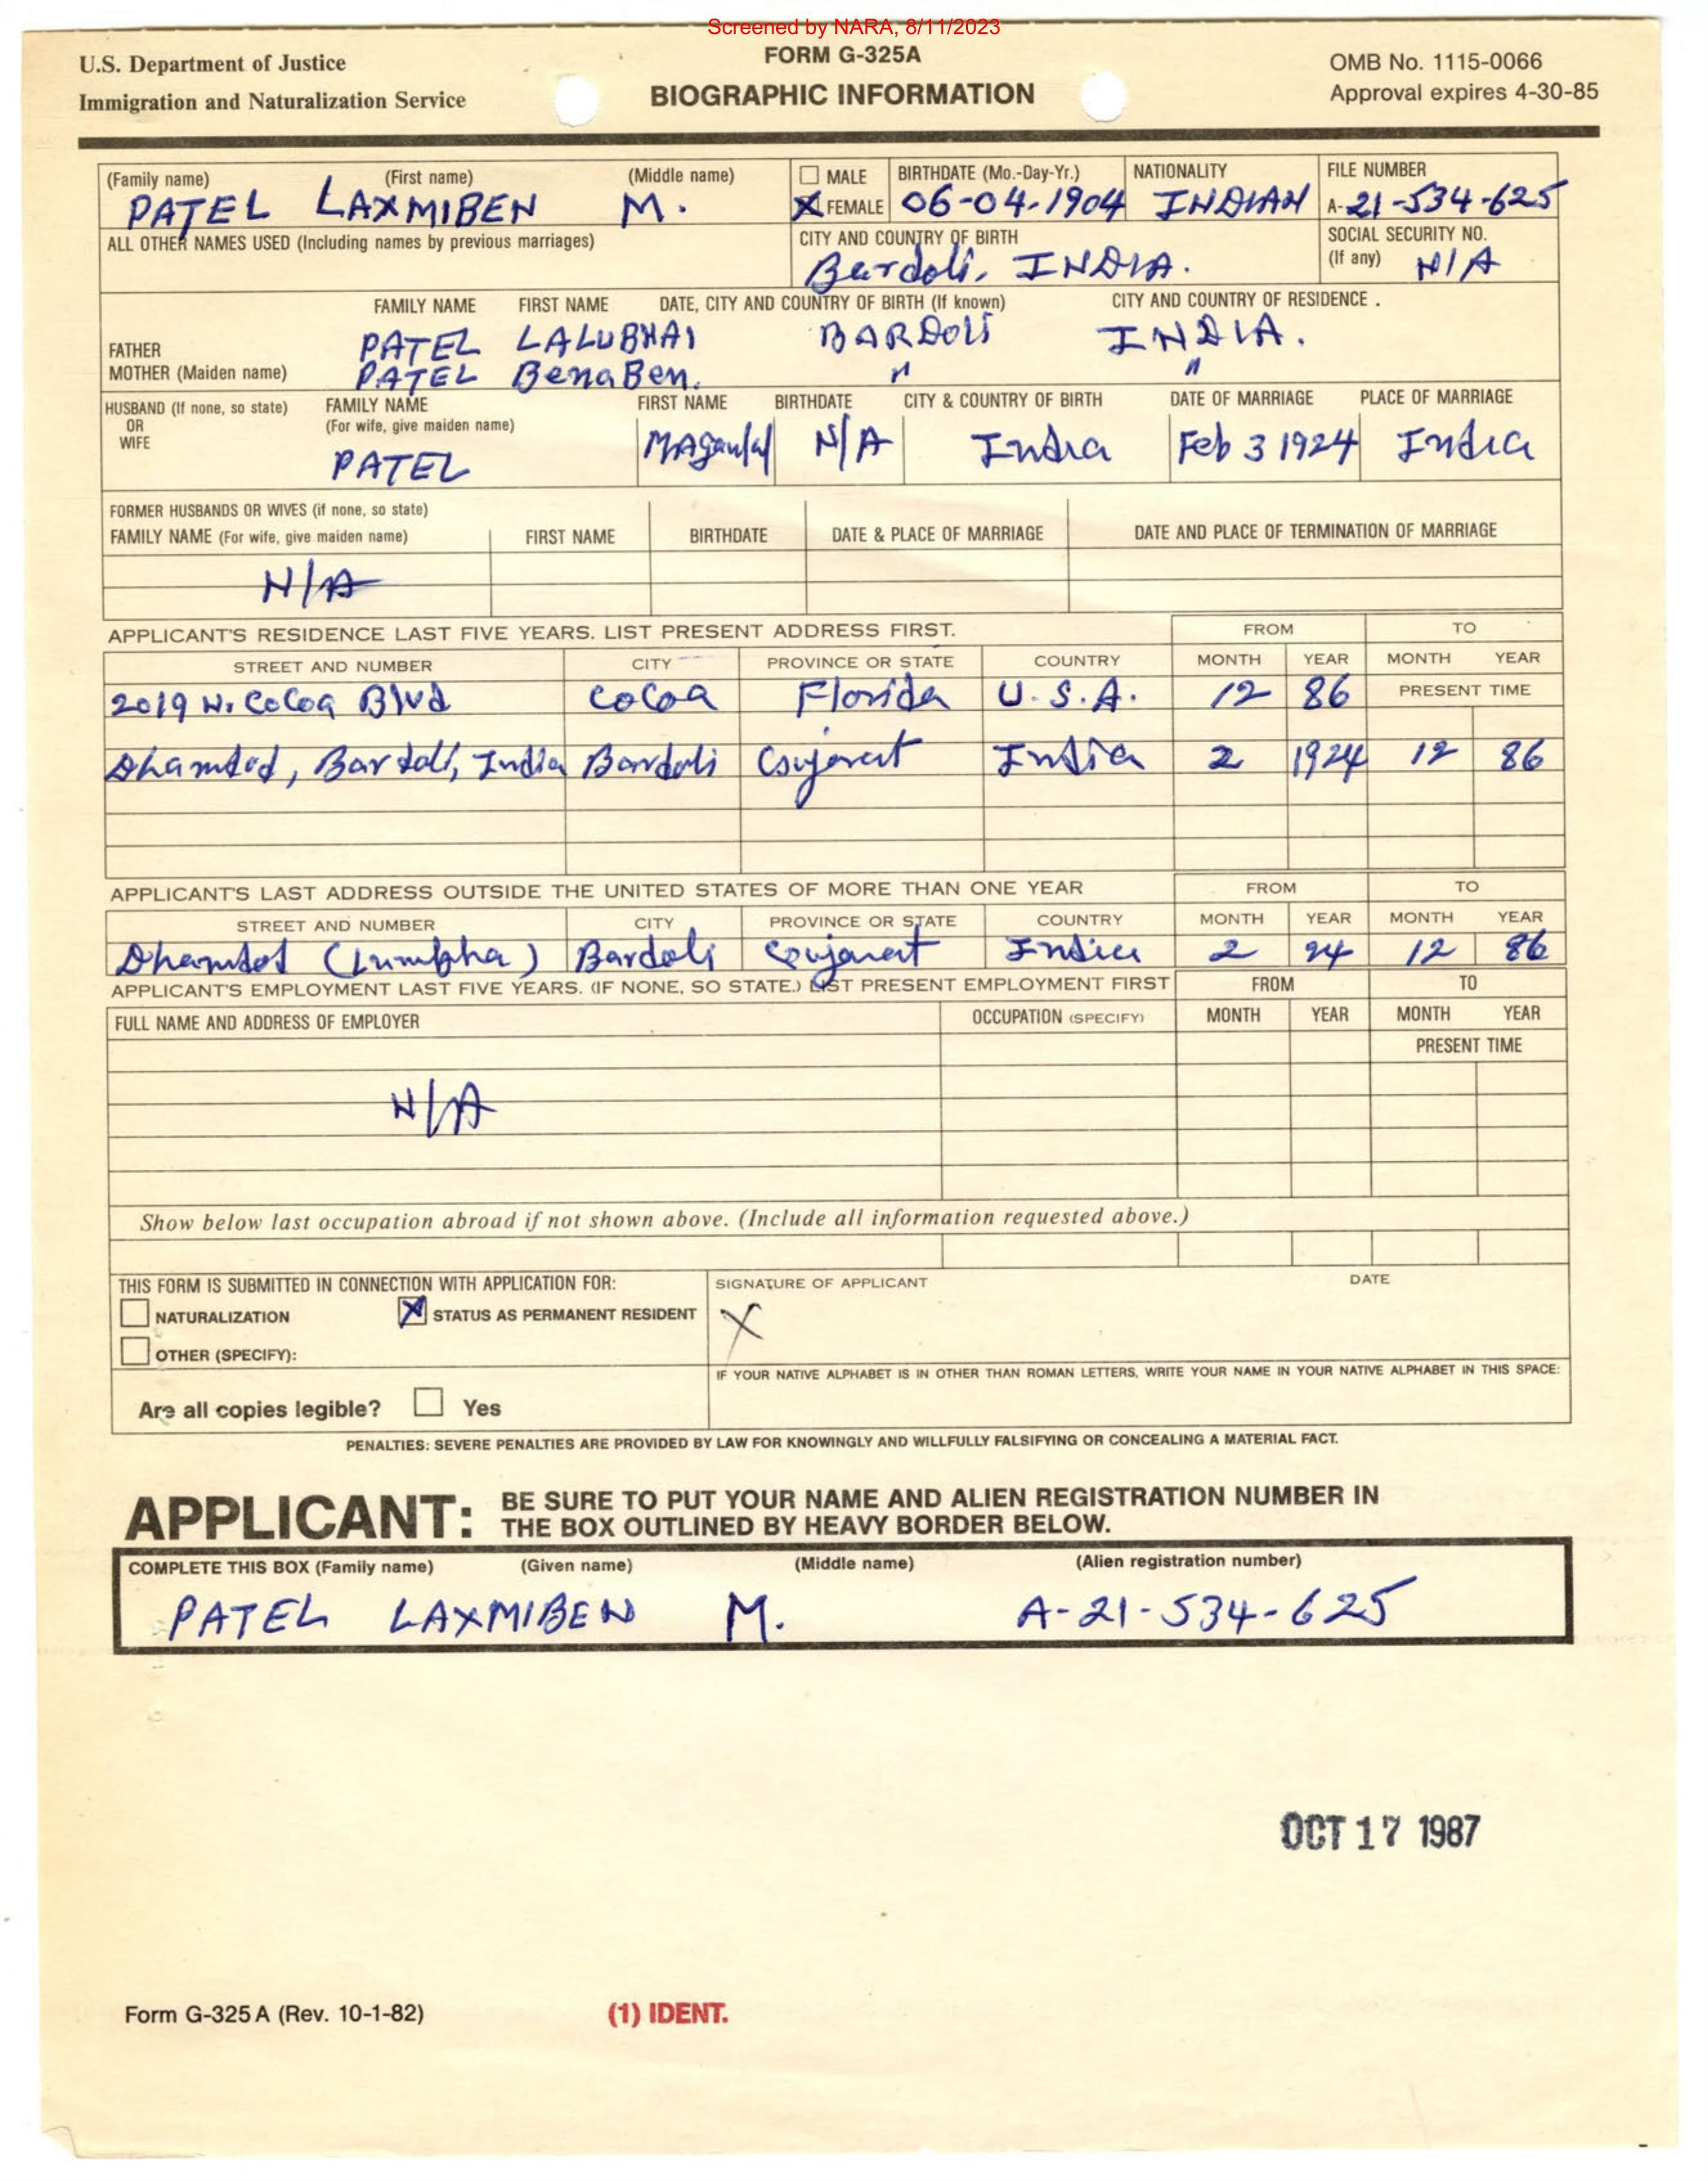 Screened by NARA, 8/11/2023
U.S. Department of Justice
Immigration and Naturalization Service
FORM G-325A
BIOGRAPHIC INFORMATION
OMB No. 1115-0066
Approval expires 4-30-85
(Family name) (First name) (Middle name)
PATEL LAXMIBEN M.
MALE
X FEMALE
BIRTHDATE (Mo.-Day-Yr.)
06-04-1904
NATIONALITY
INDIAN
FILE NUMBER
A-21-534-625
ALL OTHER NAMES USED (Including names by previous marriages)
CITY AND COUNTRY OF BIRTH
Bardoli, INDIA.
SOCIAL SECURITY NO.
(If any) N/A
FAMILY NAME FIRST NAME DATE, CITY AND COUNTRY OF BIRTH (If known) CITY AND COUNTRY OF RESIDENCE .
FATHER PATEL LALUBHAI BARDOLI INDIA.
MOTHER (Maiden name) PATEL BenaBen. " "
HUSBAND (If none, so state) OR WIFE
FAMILY NAME (For wife, give maiden name) FIRST NAME BIRTHDATE CITY & COUNTRY OF BIRTH DATE OF MARRIAGE PLACE OF MARRIAGE
PATEL Maganlal N/A India Feb 3 1924 India
FORMER HUSBANDS OR WIVES (if none, so state)
FAMILY NAME (For wife, give maiden name) FIRST NAME BIRTHDATE DATE & PLACE OF MARRIAGE DATE AND PLACE OF TERMINATION OF MARRIAGE
N/A
APPLICANT'S RESIDENCE LAST FIVE YEARS. LIST PRESENT ADDRESS FIRST. FROM TO
STREET AND NUMBER CITY PROVINCE OR STATE COUNTRY MONTH YEAR MONTH YEAR
2019 N. Cocoa Blvd Cocoa Florida U.S.A. 12 86 PRESENT TIME
Bardoli, India Bardoli Gujarat India 2 1924 12 86
APPLICANT'S LAST ADDRESS OUTSIDE THE UNITED STATES OF MORE THAN ONE YEAR FROM TO
STREET AND NUMBER CITY PROVINCE OR STATE COUNTRY MONTH YEAR MONTH YEAR
Bardoli Gujarat India 2 24 12 86
APPLICANT'S EMPLOYMENT LAST FIVE YEARS. (IF NONE, SO STATE.) LIST PRESENT EMPLOYMENT FIRST FROM TO
FULL NAME AND ADDRESS OF EMPLOYER OCCUPATION (SPECIFY) MONTH YEAR MONTH YEAR
PRESENT TIME
N/A
Show below last occupation abroad if not shown above. (Include all information requested above.)
THIS FORM IS SUBMITTED IN CONNECTION WITH APPLICATION FOR:
NATURALIZATION X STATUS AS PERMANENT RESIDENT
OTHER (SPECIFY):
SIGNATURE OF APPLICANT DATE
X
IF YOUR NATIVE ALPHABET IS IN OTHER THAN ROMAN LETTERS, WRITE YOUR NAME IN YOUR NATIVE ALPHABET IN THIS SPACE:
Are all copies legible? Yes
PENALTIES: SEVERE PENALTIES ARE PROVIDED BY LAW FOR KNOWINGLY AND WILLFULLY FALSIFYING OR CONCEALING A MATERIAL FACT.
APPLICANT: BE SURE TO PUT YOUR NAME AND ALIEN REGISTRATION NUMBER IN
THE BOX OUTLINED BY HEAVY BORDER BELOW.
COMPLETE THIS BOX (Family name) (Given name) (Middle name) (Alien registration number)
PATEL LAXMIBEN M. A-21-534-625
OCT 17 1987
Form G-325 A (Rev. 10-1-82)
(1) IDENT.